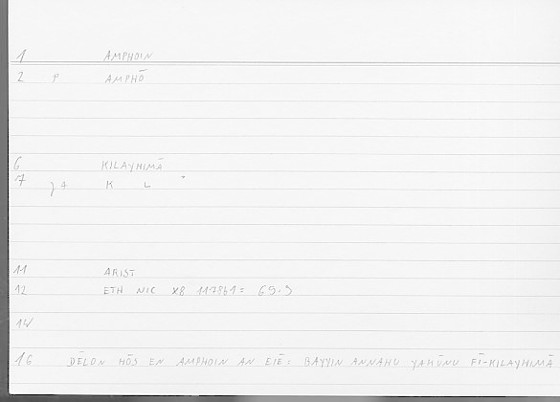 1 AMPHOIN
2 P AMPHŌ
6 KILAYHIMĀ
7 K L
11 ARIST
12 ETH NIC X8 1178b1 = 69-9
14
16 DĒLON HŌS EN AMPHOIN AN EIĒ: BAYYIN ANNAHU YAKŪNU FĪ-KILAYHIMĀ